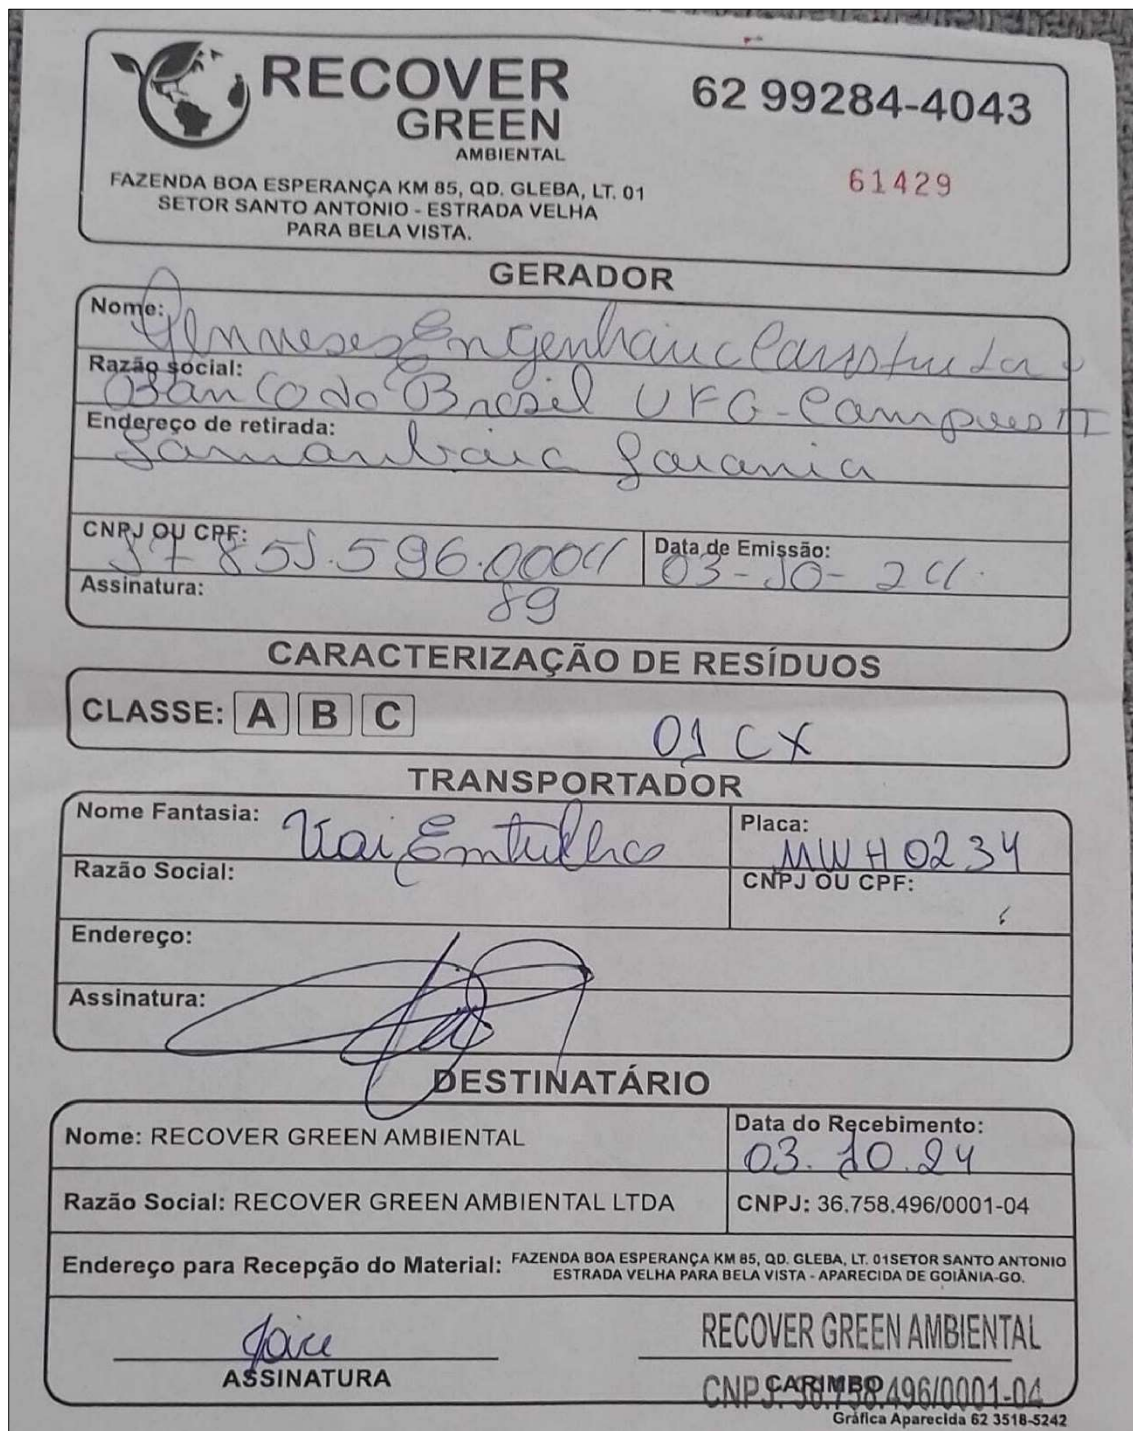 RECOVER
GREEN
AMBIENTAL
62 99284-4043
61429
FAZENDA BOA ESPERANÇA KM 85, QD. GLEBA, LT. 01
SETOR SANTO ANTONIO - ESTRADA VELHA
PARA BELA VISTA.
GERADOR
Nome: Engenharia
Razão social: Banco do Brasil UFG - Campus II
Endereço de retirada: Samambaia Goiania
CNPJ OU CPF: 596.0001
89
Data de Emissão: 03-10-24
Assinatura:
CARACTERIZAÇÃO DE RESÍDUOS
CLASSE: A B C
01 CX
TRANSPORTADOR
Nome Fantasia: Vai Entulho
Placa: MWH 0234
Razão Social:
CNPJ OU CPF:
Endereço:
Assinatura:
DESTINATÁRIO
Nome: RECOVER GREEN AMBIENTAL
Data do Recebimento: 03.10.24
Razão Social: RECOVER GREEN AMBIENTAL LTDA
CNPJ: 36.758.496/0001-04
Endereço para Recepção do Material: FAZENDA BOA ESPERANÇA KM 85, QD. GLEBA, LT. 01SETOR SANTO ANTONIO
ESTRADA VELHA PARA BELA VISTA - APARECIDA DE GOIÂNIA-GO.
Joice
ASSINATURA
RECOVER GREEN AMBIENTAL
CARIMBO
CNPJ: 36.758.496/0001-04
Gráfica Aparecida 62 3518-5242